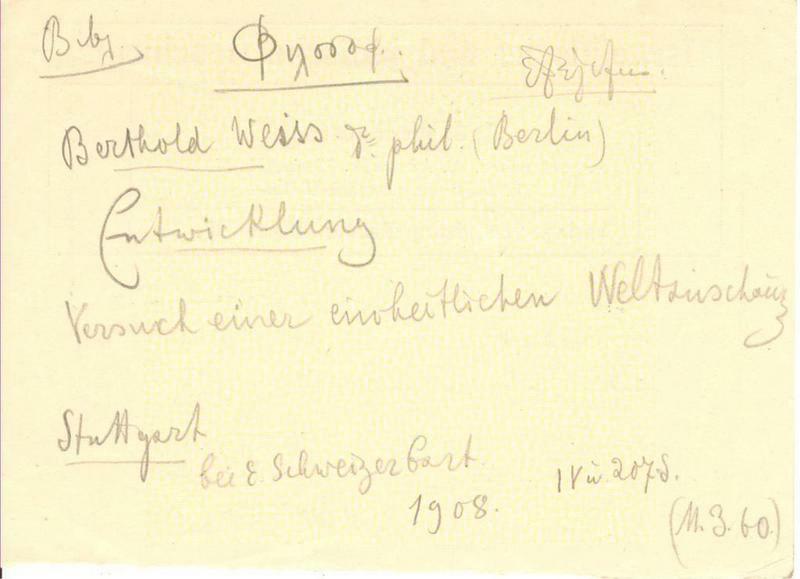 Φιλοσοφ.
Εξέλιξις.
Berthold Weiss Dr. phil. (Berlin)
Entwicklung
Versuch einer einheitlichen Weltanschaug
Stuttgart
bei E. Schweizerbart
1908.
IV u. 207 S.
(M. 3.60.)